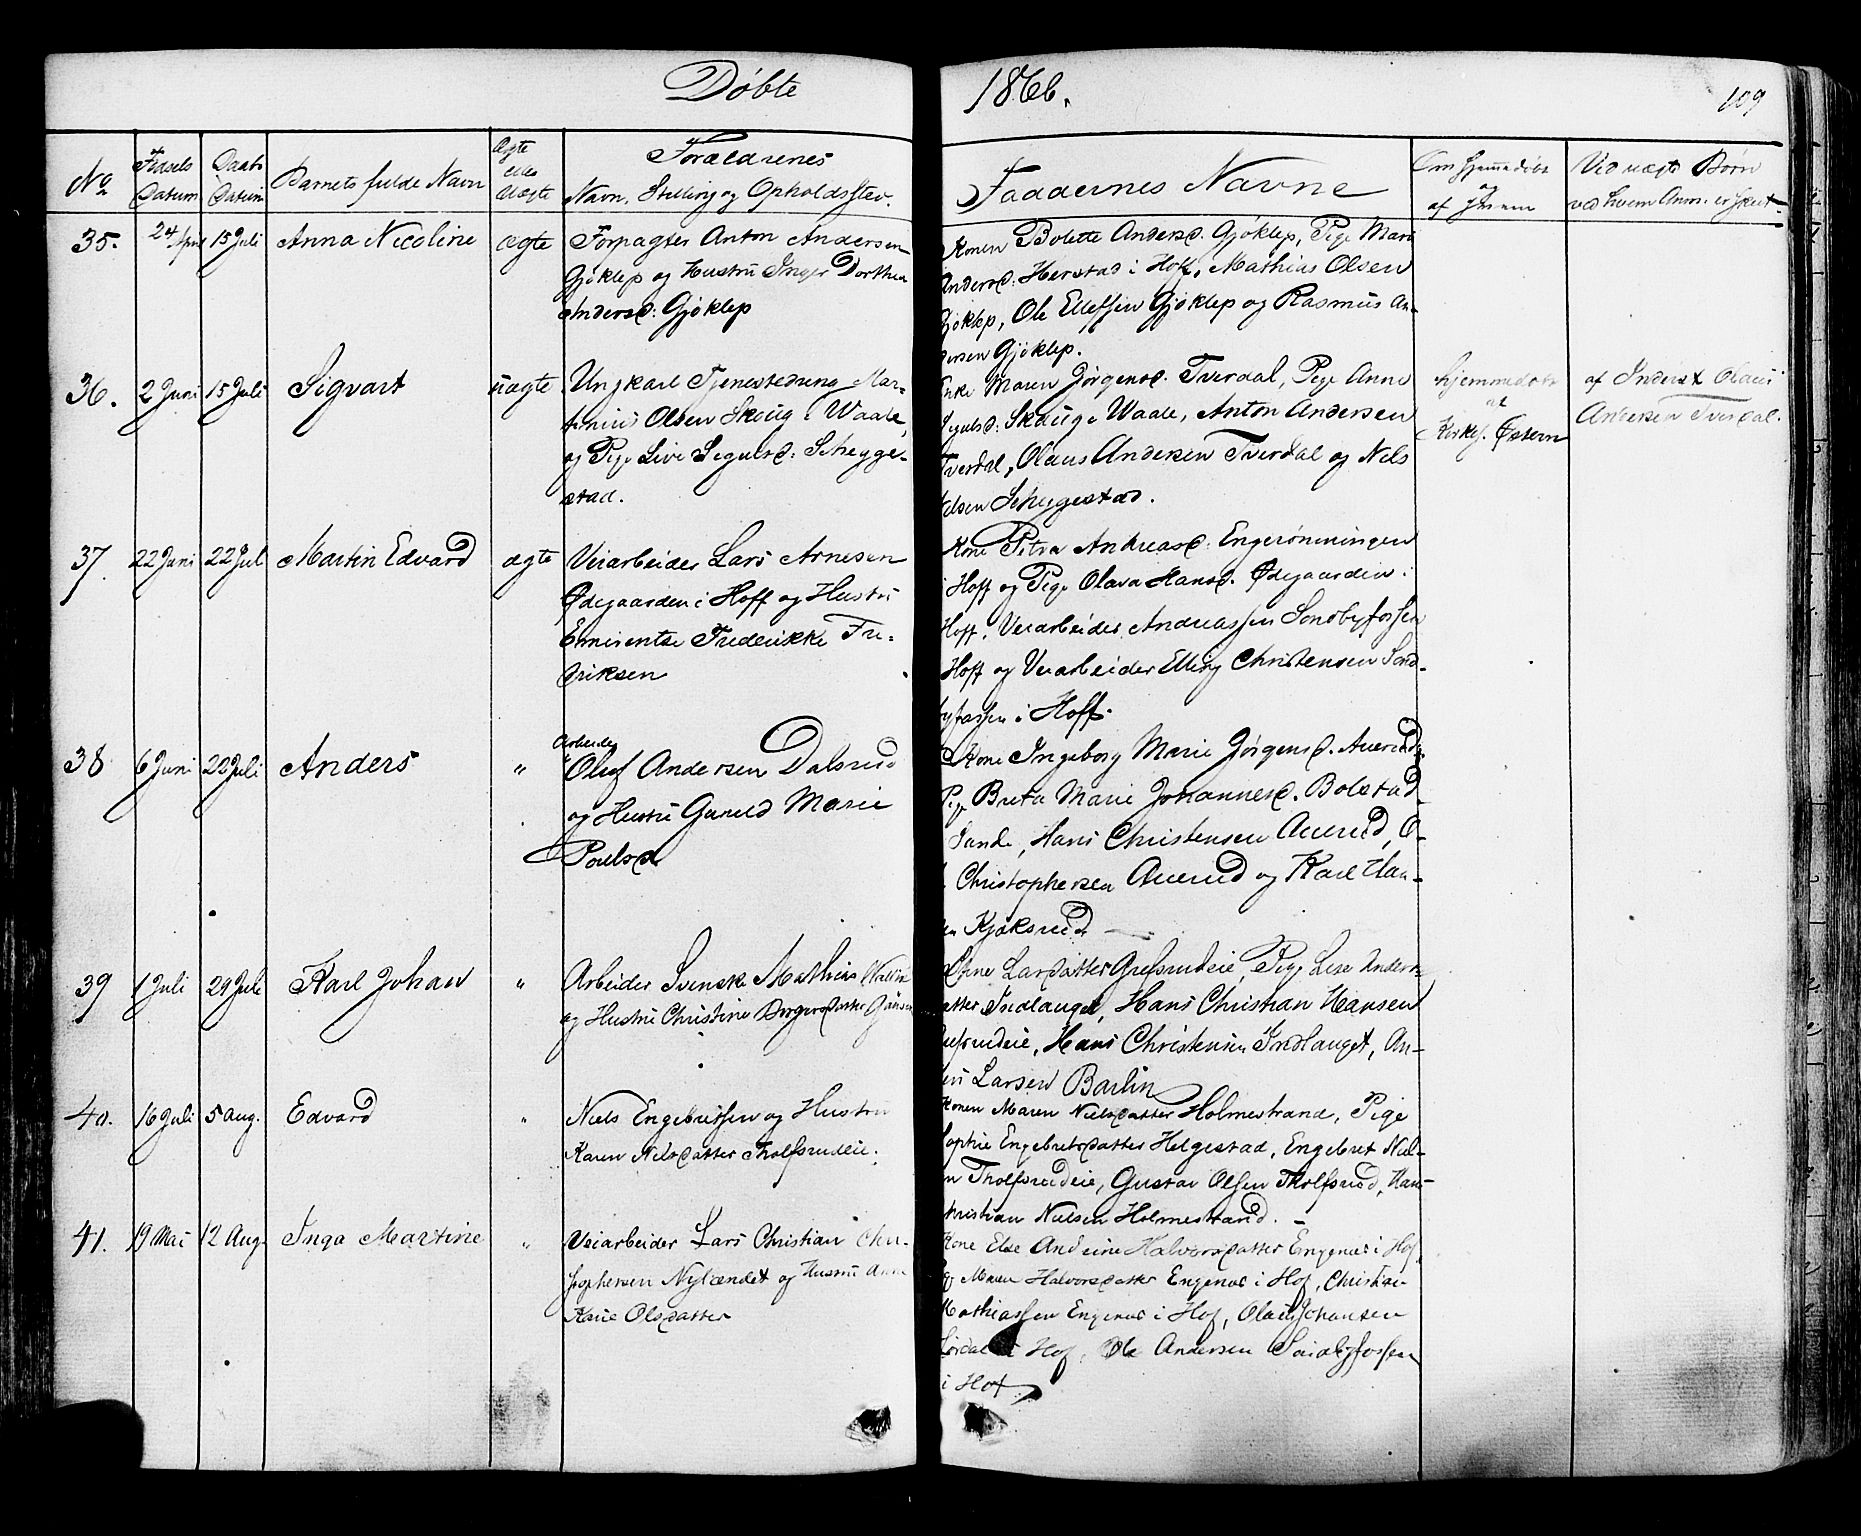 Døbte 1866. 109
No
Fødsels Datum
Daabs Datum
Barnets fulde Navn
Ægte eller Uægte
Forældrenes
Navn, Stilling og Opholdssted.
Faddernes Navne
Om Hjemmedøbt
og
af Hvem
Ved uægte Børn
ved hvem Anm. er skeet.
35. 24 April 15 Juli Anna Nicoline ægte
Forpagter Anton Andersen
Gjøklep og Hustru Inger Dorthea
Andersd: Gjøklep
Konen Bolette Andersd. Gjøklep, Pige Mari
Andersd: Herstad i Hoff, Mathias Olsen
Gjøklep, Ole Ellefsen Gjøklep og Rasmus An-
dersen Gjøklep.
36. 2 Juni 15 Juli Sigvart uægte
Ungkarl Tjenestedreng Mar-
tinius Olsen Skoug i Waale,
og Pige Live Segulsd: Schygge-
stad.
Enke Maren Jørgensd. Tverdal, Pige Anne
Segulsd: Skoug i Waale, Anton Andersen
Tverdal, Olaus Andersen Tverdal og Nels
Nelsen Schygestad.
hjemmedøbt
af
Kirkes. Østern
af Inderst Olaus
Andersen Tverdal.
37. 22 Juni 22 Jul Martin Edvard ægte
Veiarbeider Lars Arnesen
Ødegaarden i Hoff og Hustru
Emientse Frederikke Fre-
driksen
Kone Petra Andreasd. Engerønningen
i Hoff og Pige Olava Hansd. Ødegaarden i
Hoff, Veiarbeider Andreassen Sondbyfossen
Hoff og Veiarbeider Elling Christensen Sond-
byfossen i Hoff.
38 6 Juni 22 Juli Anders "
Arbeider
Oluf Andersen Dalsrud
og Hustru Gunild Marie
Poulsd
Kone Ingeborg Marie Jørgensd. Auerud,
Pige Breta Marie Johannesd. Bolstad
Sande, Hans Christensen Auerud, O-
Christophersen Auerud og Karl Han-
sen Kjøksrud
39 1 Juli 29 Juli Karl Johan "
Arbeider Svenske Mathias Wallin
og Hustru Christine Birgersdatter
Ohne Larsdatter Grefsrudeie, Pige Lise Anders-
datter Indlauget, Hans Christian Hansen
Grefsrudeie, Hans Christensen Indlauget, An-
ders Larsen Barlin
40. 16 Juli 5 Aug. Edvard "
Niels Engebretsen og Hustru
Karen Nelsdatter Tholfsrudeie.
Konen Maren Nielsdatter Holmestrand, Pige
Sophie Engebretsdatter Helgestad, Engebret Niel-
sen Tholfsrudeie, Gustav Olsen Tholfsrud, Hans
Christian Nielsen Holmestrand.
41. 19 Mai 12 Aug Inga Martine "
Veiarbeider Lars Christian Chri-
stophersen Nylændet og Hustru Anne
Karie Olsdatter
Kone Else Andrine Halvorsdatter Engenæs i Hof,
Pige Maren Halvorsdatter Engenæs i Hof, Christian
Mathiassen Engenæs i Hof, Olaus Johansen
Lørdal i Hof, Ole Andersen Sundbyfossen
i Hof